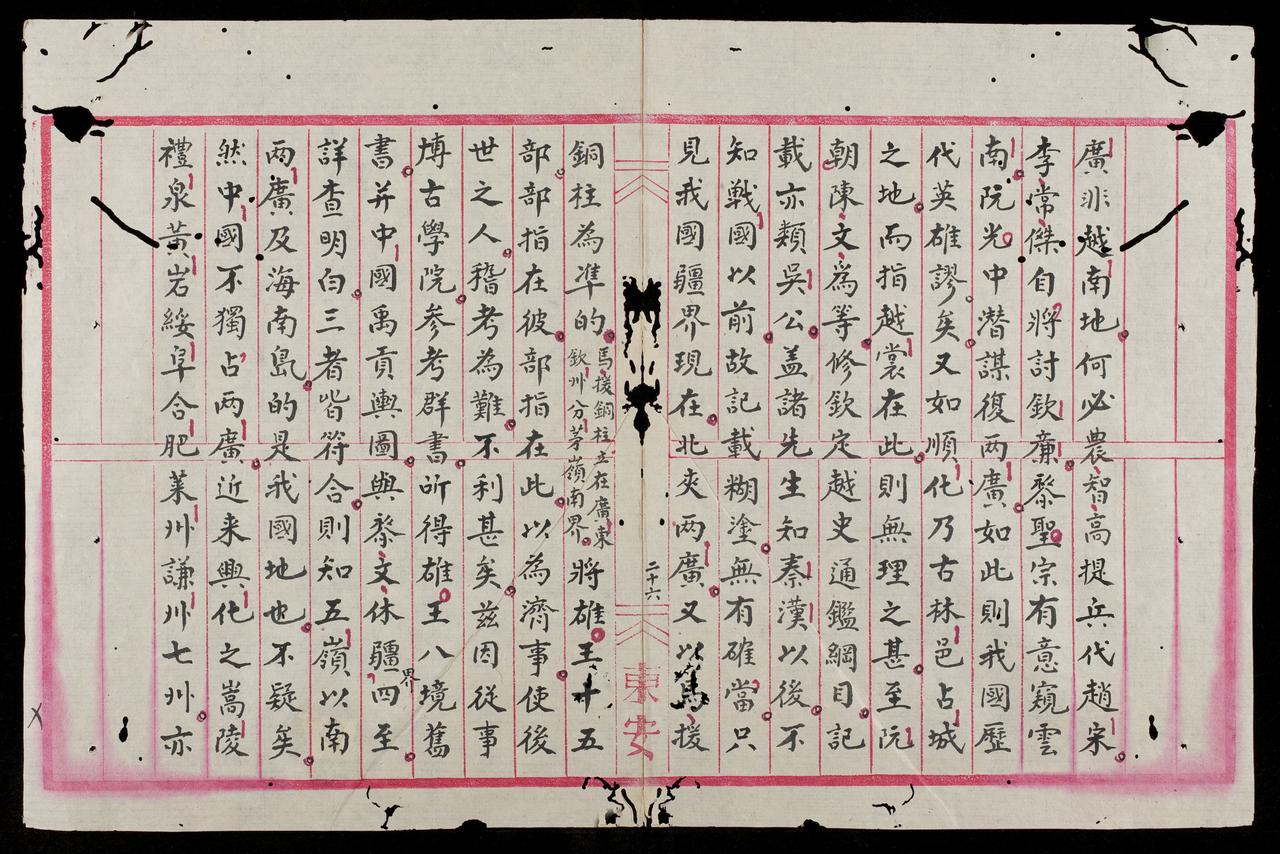 廣非越南地何必農智高提兵代趙宋
李常傑自將討欽廉黎聖宗有意窺雲
南阮光中潛謀復兩廣如此則我國歷
代英雄謬矣又如順化乃古林邑占城
之地而指越裳在此則無理之甚至阮
朝陳文為等修欽定越史通鑑綱目記
載亦類吳公盖諸先生知秦漢以後不
知戰國以前故記載糊塗無有確當只
見我國疆界現在北夾兩廣又以馬援
二十六
東安
銅柱為準的馬援銅柱立在廣東
欽州分茅嶺南界將雄王十五
部部指在彼部指在此以為濟事使後
世之人稽考為難不利甚矣兹因從事
博古學院參考群書所得雄王八境舊
書并中國禹貢輿圖與黎文休疆界四至
詳查明白三者皆符合則知五嶺以南
兩廣及海南島的是我國地也不疑矣
然中國不獨占兩廣近来興化之嵩陵
禮泉黃岩綏阜合肥萊州謙州七州亦